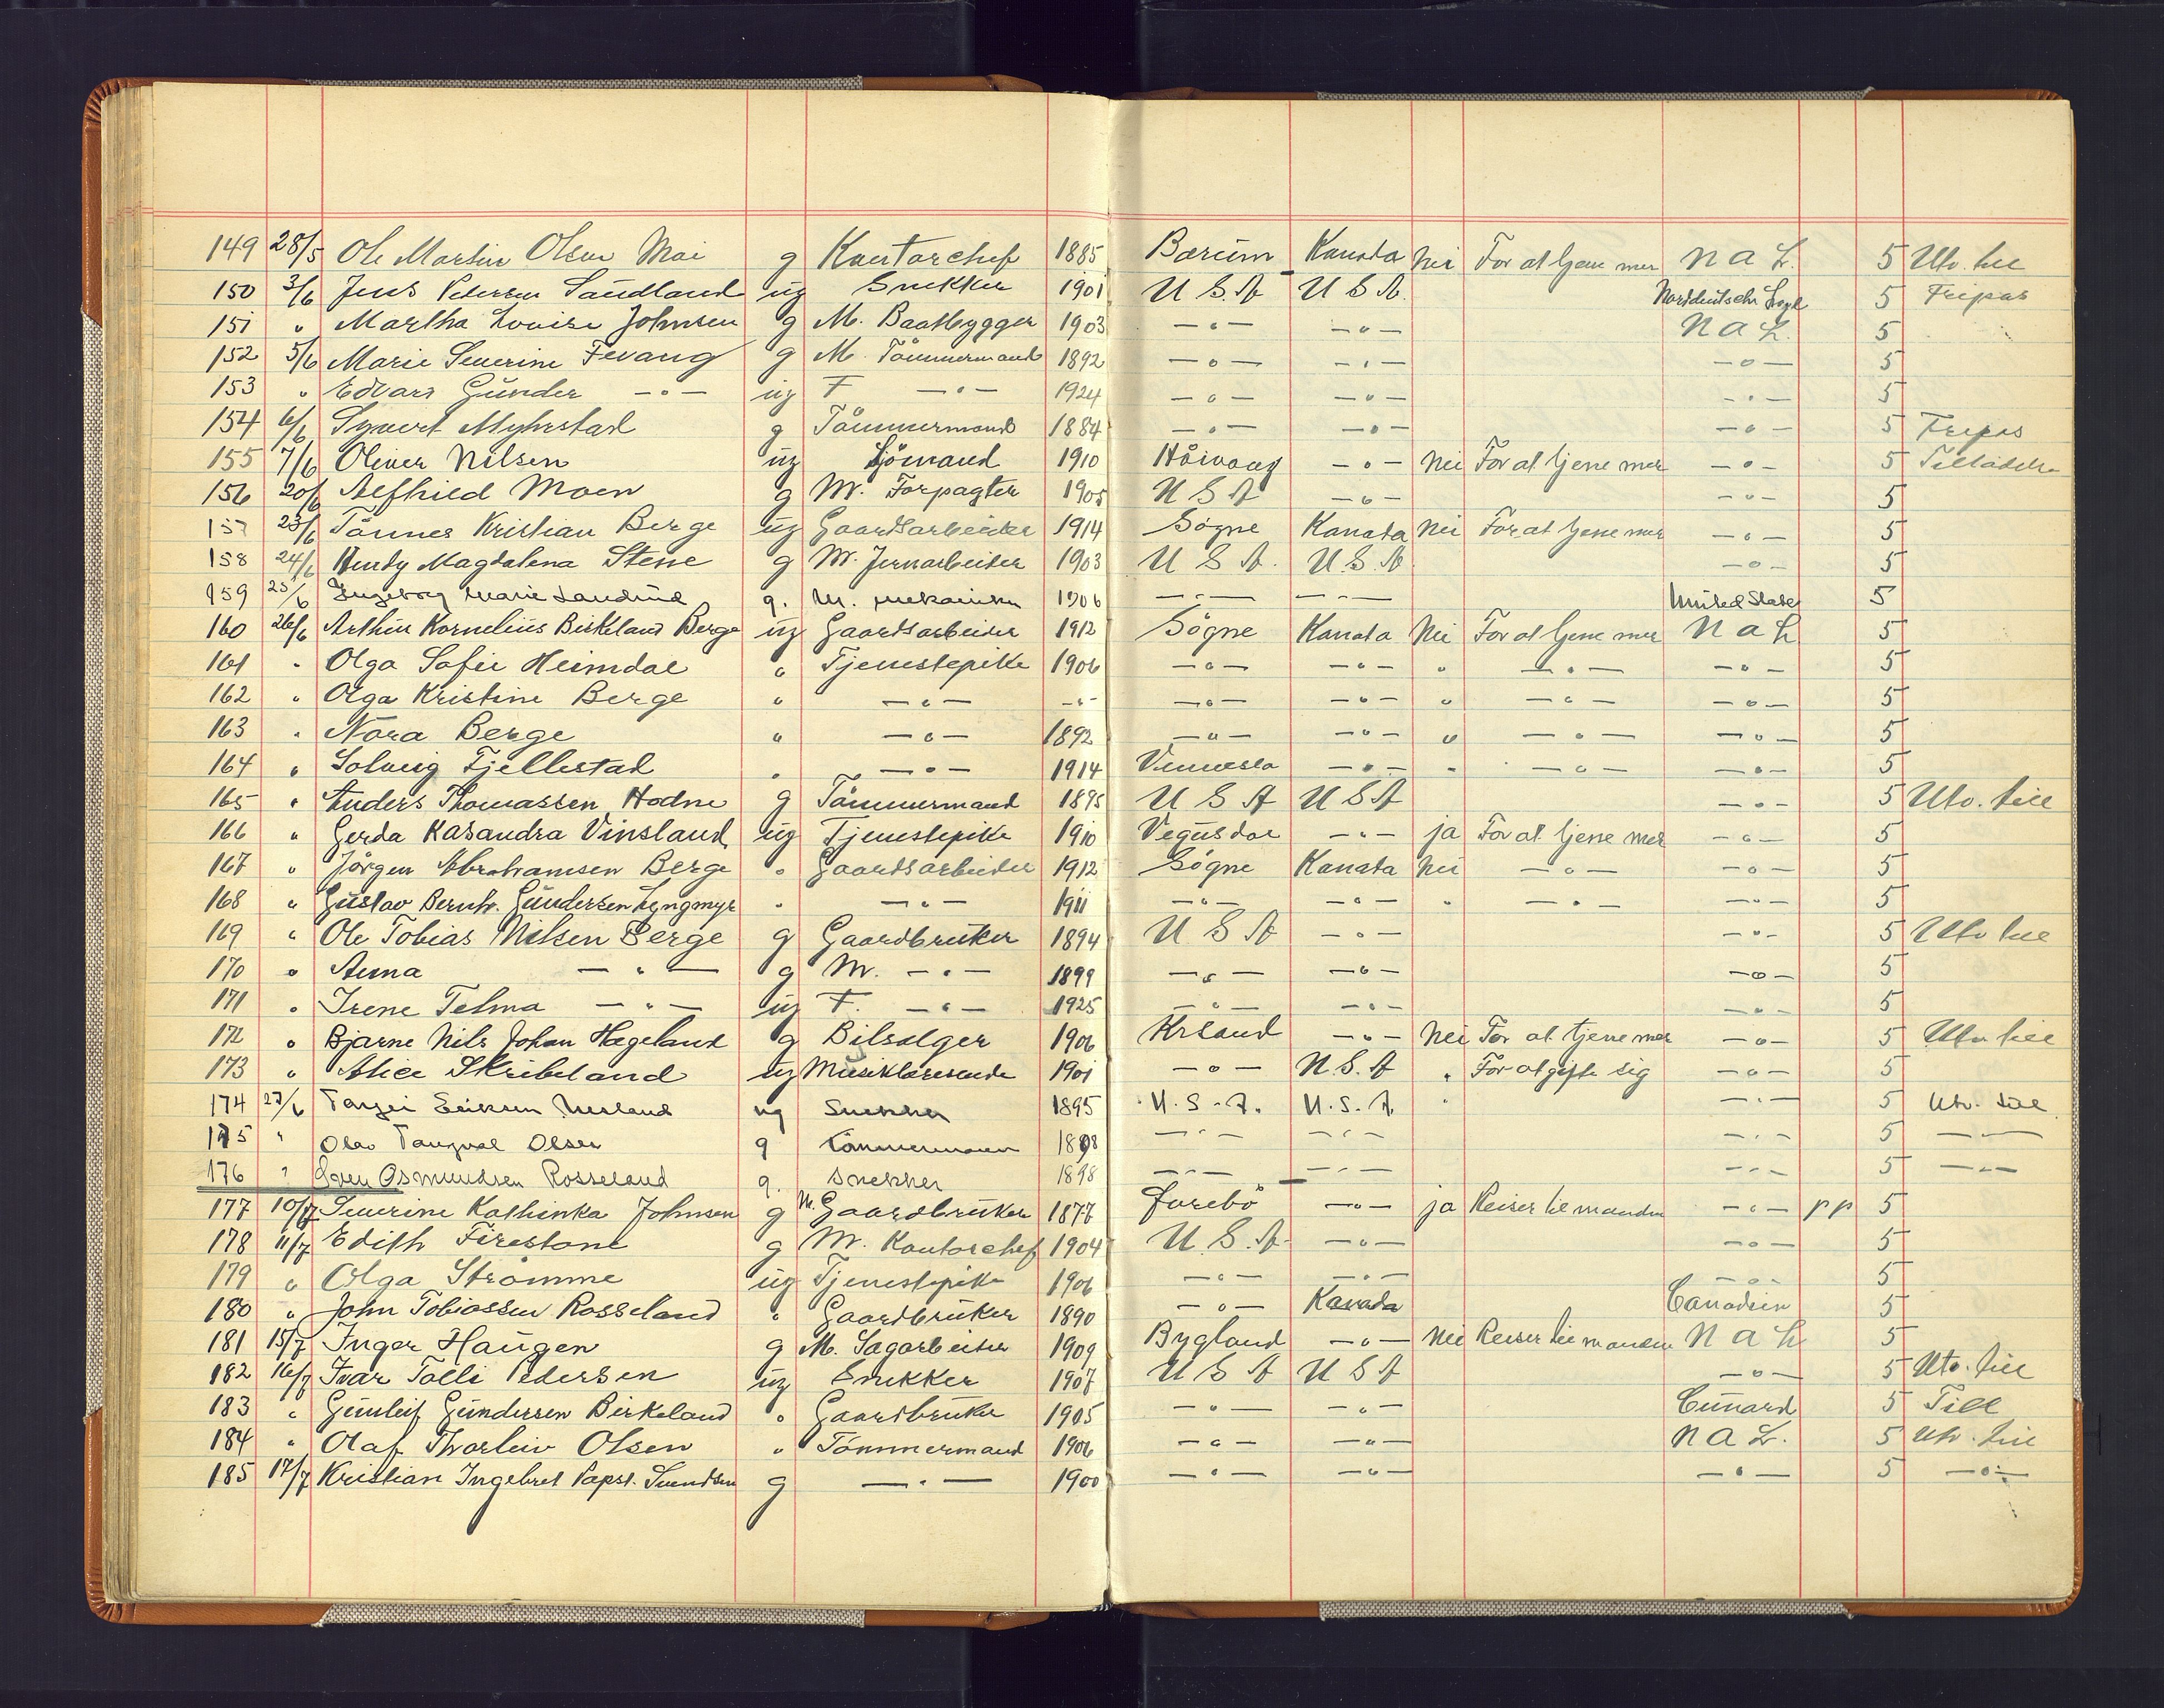 149 28/5 Ole Martin Olsen Moi g Kontorchef 1885 Bærum Kanada Nei For at tjene mer N A L. 5 Utv. till
150 3/6 Jens Petersen Sandland ug Snekker 1901 U S A U S A. Norddeutsche Loyd 5 Fripas
151 " Martha Louise Johnsen g M. Baatbygger 1903 —"— —"— N A L. 5
152 5/6 Marie Severine Fevang g M. Tømmermand 1892 —"— —"— —"— 5
153 " Edvard Gunder —"— ug F —"— 1924 —"— —"— —"— 5
154 6/6 Syvert Myhrstad g Tømmermand 1884 —"— —"— —"— 5 Fripas
155 7/6 Oliver Nilsen ug Sjømand 1910 Høivaag —"— Nei For at tjene mer —"— 5 Tilladelse
156 20/6 Alfhild Moen g M. Forpagter 1905 U S A —"— —"— 5
157 23/6 Tønnes Kristian Berge ug Gaardsarbeider 1914 Søgne Kanada Nei For at tjene mer —"— 5
158 24/6 Hendy Magdalena Stene g M. Jernarbeider 1903 U S A. U. S. A. —"— 5
159 25/6 Ingeborg Marie Sandrud g. M. mekaniker 1906 —"— —"— United States 5
160 26/6 Arthur Kornelius Birkeland Berge ug Gaardsarbeider 1912 Søgne Kanada Nei For at tjene mer N A L 5
161 " Olga Sofie Heimdal " Tjenestepike 1906 —"— —"— " —"— —"— 5
162 " Olga Kristine Berge " —"— —"— —"— —"— " —"— —"— 5
163 " Nora Berge " —"— 1892 —"— —"— " —"— —"— 5
164 " Solveig Fjellestad " —"— 1914 Vennesla —"— " —"— —"— 5
165 " Anders Thomassen Hodne g Tømmermand 1895 U S A U S A —"— 5 Utv. till
166 " Gerda Kasandra Vinsland ug Tjenestepike 1910 Vegusdal —"— ja For at tjene mer —"— 5
167 " Jørgen Abrahamsen Berge " Gaardsarbeider 1912 Søgne Kanada Nei —"— —"— 5
168 " Gustav Bernh. Gundersen Lyngmyr " —"— 1911 —"— —"— " —"— —"— 5
169 " Ole Tobias Nilsen Berge g Gaardbruker 1894 U S A —"— —"— 5 Utv till
170 " Anna —"— g M. —"— 1899 —"— —"— —"— 5
171 " Irene Telma —"— ug F. —"— 1925 —"— —"— —"— 5
172 " Bjarne Nils Johan Hageland g Bilselger 1906 Krsand —"— Nei For at tjene mer —"— 5 Utv till
173 " Alice Skribeland ug Musiklærerinde 1901 —"— U. S. A " For at gifte sig —"— 5
174 27/6 Tarjei Eriksen Nesland ug Snekker 1895 U. S. A. U. S. A. " —"— 5 Utv. till.
175 " Olav Tangval Olsen g Tømmermann 1898 —"— —"— —"— 5 —"—
176 " Sven Osmundsen Rosseland g. Snekker 1898 —"— —"— —"— 5 —"—
177 10/7 Severine Kathinka Johnsen g M. Gaardbruker 1877 Jurebø —"— ja Reiser til manden —"— pp 5
178 11/7 Edith Firestone g M. Kontorchef 1904 U. S. A. —"— —"— 5
179 " Olga Strømme ug Tjenestepike 1906 —"— —"— —"— 5
180 " John Tobiassen Rosseland " Gaardbruker 1890 —"— Kanada Canadien 5
181 15/7 Inger Haugen g M. Sagarbeider 1909 Bygland —"— Nei Reiser til manden N A L 5
182 16/7 Ivar Tolli Pedersen ug Snekker 1907 U S A U S A —"— 5 Utv. till
183 " Gunleif Gundersen Birkeland " Gaardbruker 1905 —"— —"— Cunard 5 Till
184 " Olaf Thorleiv Olsen " Tømmermand 1906 —"— —"— N A L. 5 Utv. till
185 17/7 Kristian Ingebret Svendsen g —"— 1900 —"— —"— —"— 5 —"—